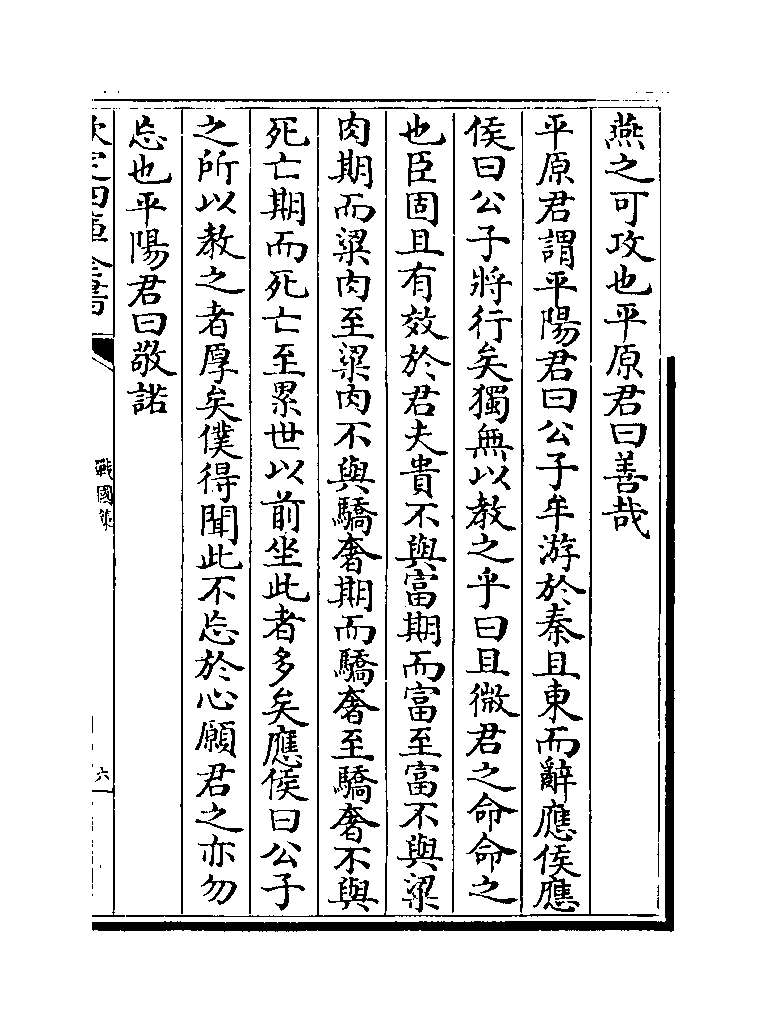 燕之可攻也平原君曰善哉
平原君謂平陽君曰公子牟游於秦且東而辭應侯應
侯曰公子將行矣獨無以教之乎曰且微君之命命之
也臣固且有效於君夫貴不與富期而富至富不與粱
肉期而粱肉至粱肉不與驕奢期而驕奢至驕奢不與
死亡期而死亡至累世以前坐此者多矣應侯曰公子
之所以教之者厚矣僕得聞此不忘於心願君之亦勿
忘也平陽君曰敬諾
欽定四庫全書
戰國策
六